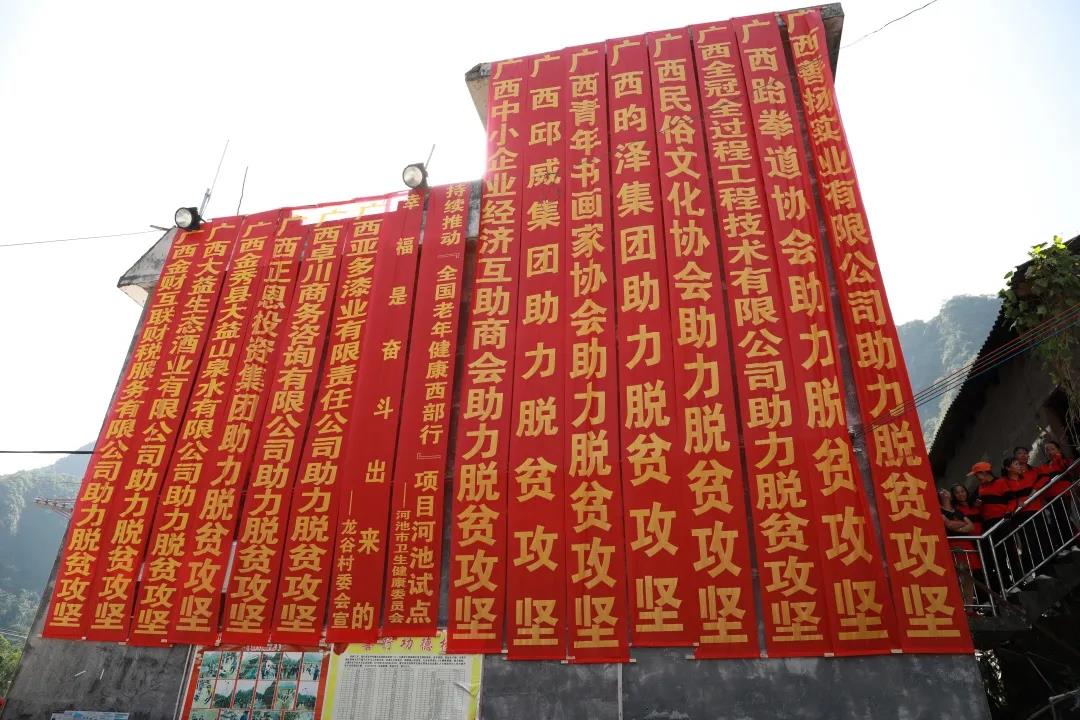 广西金财互联财税服务有限公司助力脱贫攻坚
广西大益生态酒业有限公司助力脱贫攻坚
广西金秀县大益山泉水有限公司助力脱贫攻坚
广西正恩投资集团助力脱贫攻坚
广西卓川商务咨询有限公司助力脱贫攻坚
广西亚多漆业有限责任公司助力脱贫攻坚
幸福是奋斗出来的
——龙谷村委会宣
持续推动『全国老年健康西部行』项目河池试点
——河池市卫生健康委员会
广西中小企业经济互助商会助力脱贫攻坚
广西邱威集团助力脱贫攻坚
广西青年书画家协会助力脱贫攻坚
广西昀泽集团助力脱贫攻坚
广西民俗文化协会助力脱贫攻坚
广西全冠全过程工程技术有限公司助力脱贫攻坚
广西跆拳道协会助力脱贫攻坚
广西善扬实业有限公司助力脱贫攻坚
善行功德